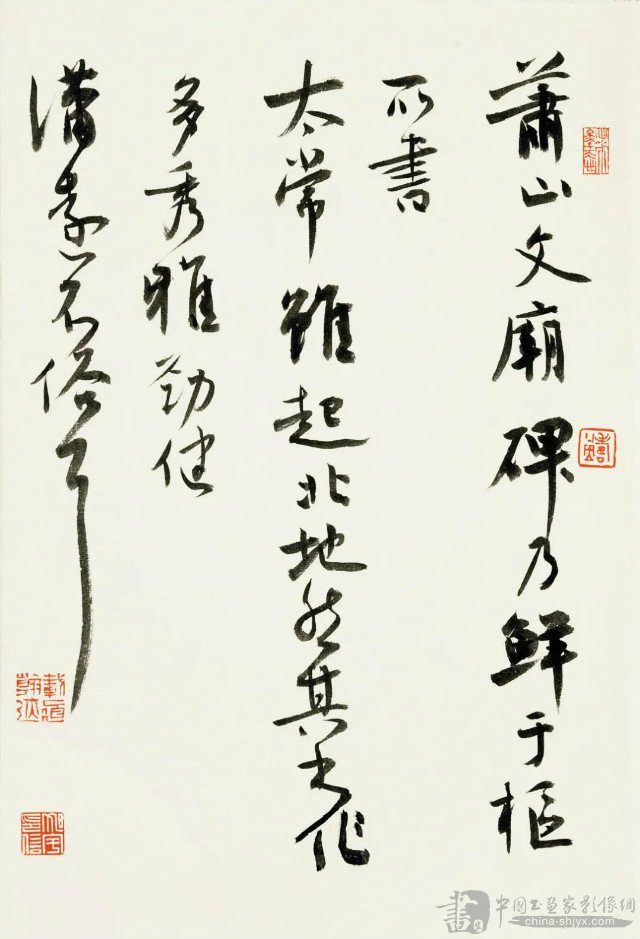 蕭山文廟碑乃鮮于樞
所書
太常雖起北地然其書作
多秀雅勁健
瀟素不俗耳
中国书画家影像網
china-shjyx.com